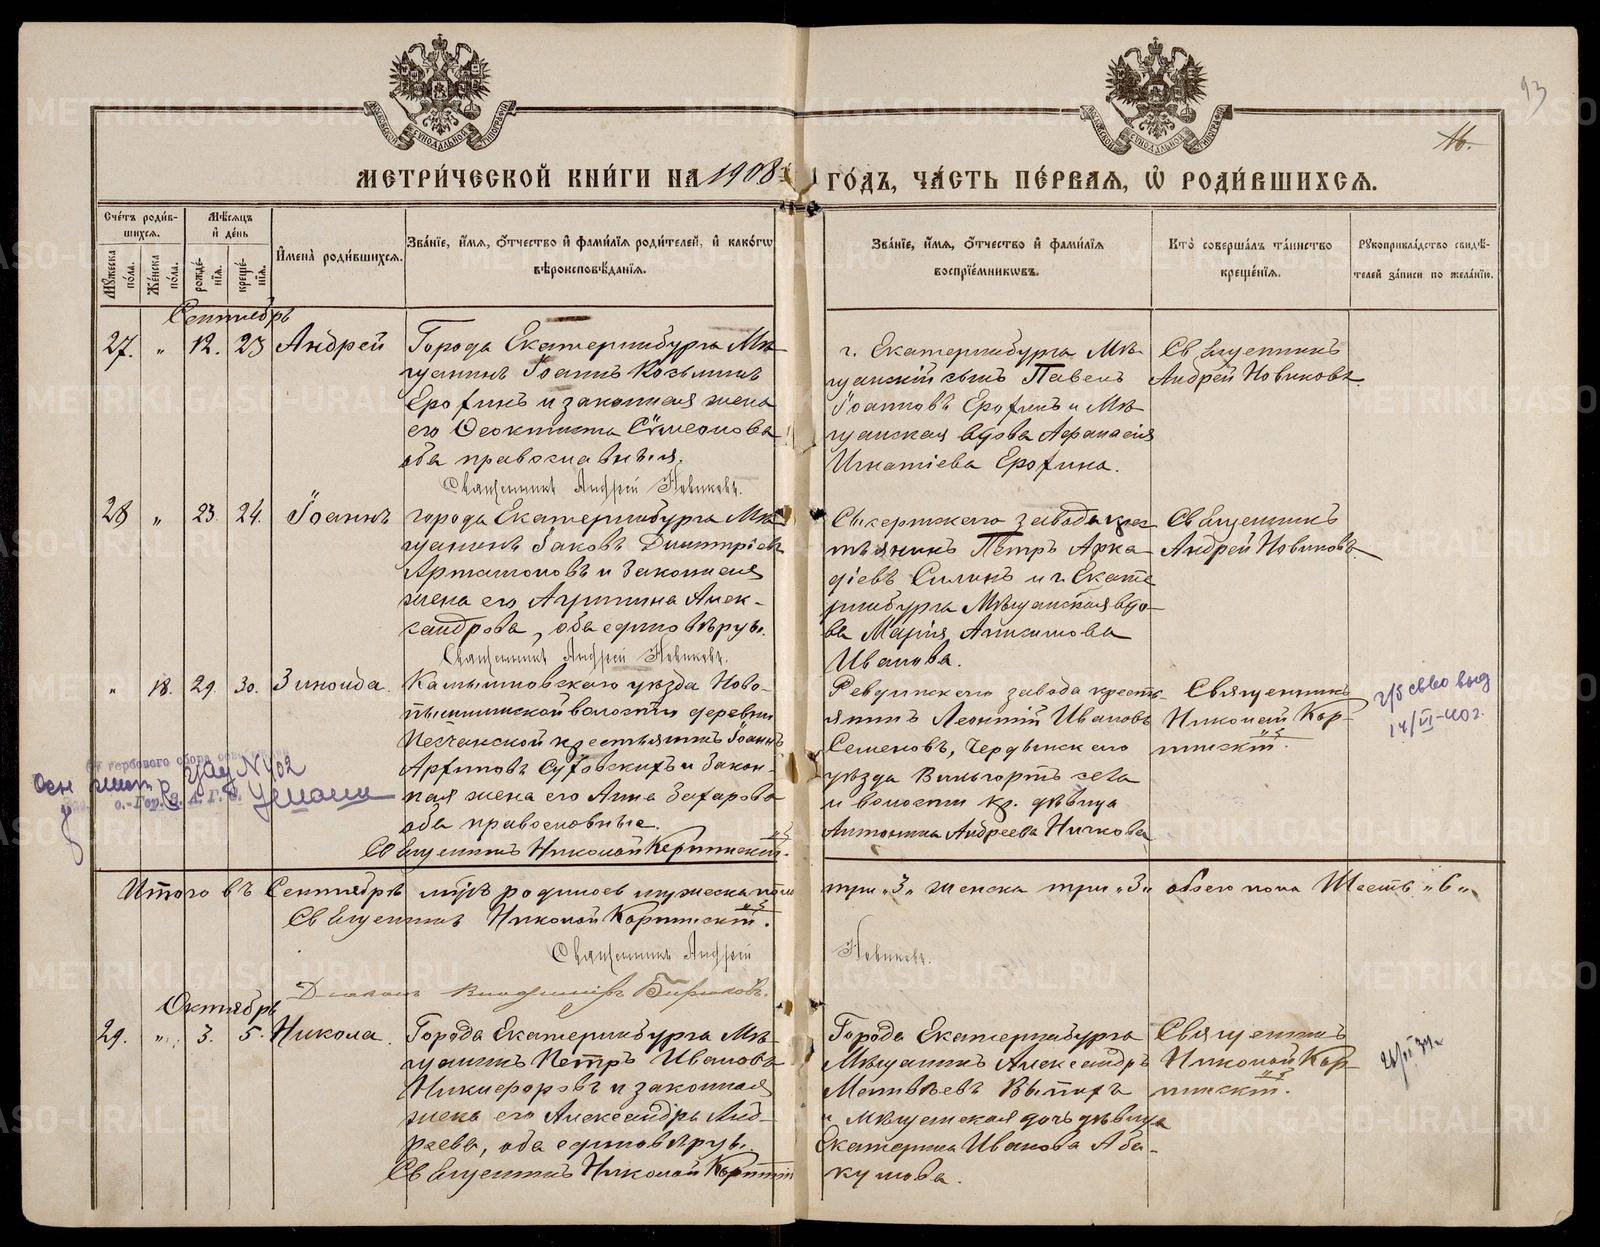 93
16.
МЕТРИ́ЧЕСКОЙ КНИ́ГИ НА 1908 ГО́ДЪ, ЧА́СТЬ ПЕ́РВАЯ, Ѡ РОДИ́ВШИХСЯ.
Сче́тъ роди́в-
шихся.
Мѣ́сяцъ
и де́нь
Му́жеска по́ла.
Же́нска по́ла.
рожде́-
нїя.
креще́-
нїя.
Имена̀ роди́вшихся.
Зва́нїе, и́мя, о́тчество и фами́лїя роди́телей, и како́гѡ
вѣроисповѣ́данїя.
Зва́нїе, и́мя, о́тчество и фами́лїя
воспрїе́мникѡвъ.
Кто̀ соверша́лъ та́инство
креще́нїя.
Рꙋкоприкла́дство свидѣ́-
телей за́писи по жела́нїю.
Сентябрь
27. " 12. 23 Андрей
Города Екатеринбурга Мѣ-
щанинъ Іоаннъ Козьминъ
Ерохинъ и законная жена
его Феоктиста Сѵмеонова
оба православные.
Священникъ Андрей Новиковъ.
г. Екатеринбурга Мѣ-
щанскій сынъ Павелъ
Іоанновъ Ерохинъ и Мѣ-
щанская вдова Афанасія
Игнатіева Ерохина.
Священникъ
Андрей Новиковъ
28 " 23. 24. Іоаннъ
города Екатеринбурга Мѣ-
щанинъ Іаковъ Димитріевъ
Артамоновъ и законная
жена его Агрипина Алек-
сандрова, оба единовѣрцы.
Священникъ Андрей Новиковъ.
Сысертскаго завода крес-
тьянинъ Петръ Арка-
діевъ Силинъ и г. Екате
ринбурга Мѣщанская вдо-
ва Марія Анисимова
Иванова.
Священникъ
Андрей Новиковъ.
" 18. 29. 30. Зинаида.
Камышловскаго уѣзда Ново-
пышминской волости деревни
крестьянинъ Іоаннъ
Архиповъ Суховскихъ и закон-
ная жена его Анна Захарова
оба православные.
Священникъ Николай Корпинскій.
Ревдинскаго завода кресть-
янинъ Леонтій Ивановъ
Семеновъ, Чердынскаго
уѣзда Вильгортъ села
и волости кр. дѣвица
Антонина Андреева Ничкова
Священникъ
Николай Кор-
пинскій.
14/VI-40г.
гербового сбора
Итого въ Сентябрѣ мцѣ родилось мужеска пола три "3" женска три "3" обоего пола Шесть "6"
Священникъ Николай Корпинскій.
Священникъ Андрей Новиковъ.
Діаконъ Владиміръ Бирюковъ.
Октябрь
29. " 3. 5. Никола.
Города Екатеринбурга Мѣ-
щанинъ Петръ Ивановъ
Никифоровъ и законная
жена его Александра Анд-
реева, оба единовѣрцы.
Священникъ Николай Корпинскій
Города Екатеринбурга
Мѣщанинъ Александръ
Матвѣевъ
и Мѣщанская дочь дѣвица
Екатерина Иванова Аба-
кумова.
Священникъ
Николай Кор-
пинскій.
METRIKI.GASO-URAL.RU